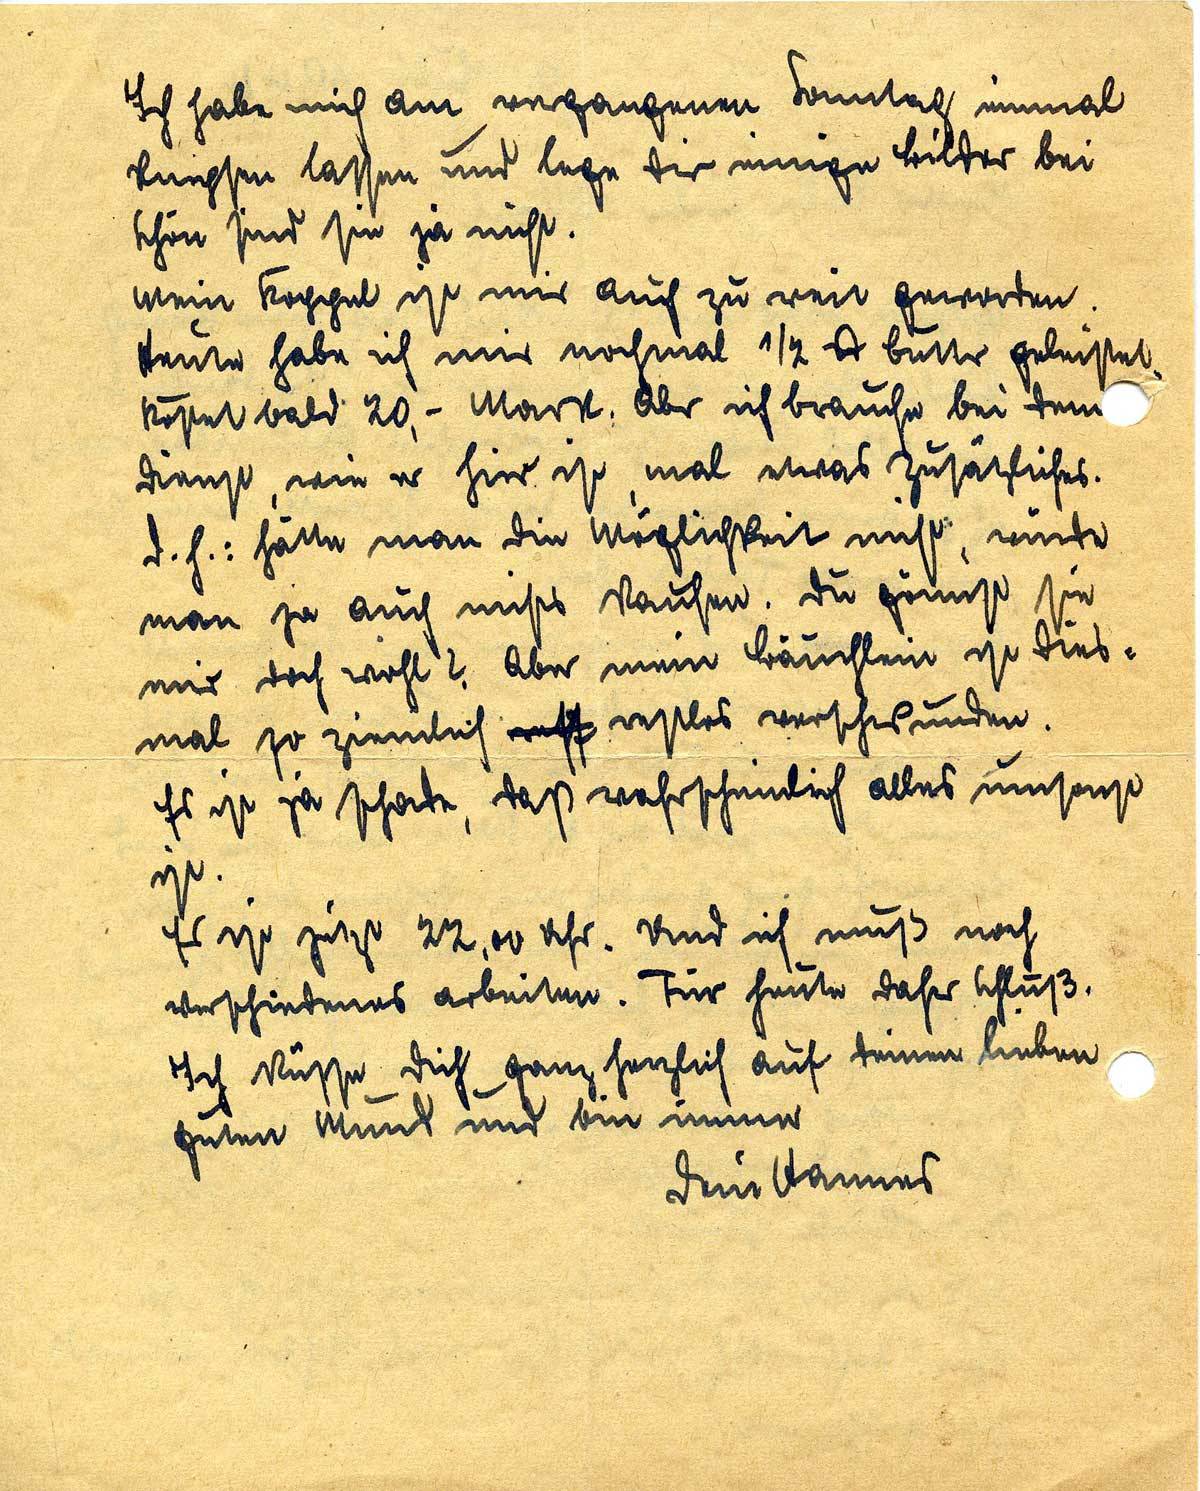 Ich habe mich am vergangenen Sonntag einmal
knipsen lassen und lege dir einige Bilder bei
schön sind sie ja nicht.
Mein Koppel ist mir auch zu weit geworden.
Heute habe ich mir nochmal 1/2 ℔ Butter geleistet.
Kostet bald 20,- Mark. Aber ich brauche bei dem
Dienst, wie er hier ist, mal etwas Zusätzliches.
D.h.: hätte man die Möglichkeit nicht, würde
man ja auch nichts kaufen. Du gönnst sie
mir doch wohl? Aber mein Bäuchlein ist dies-
mal so ziemlich restlos verschwunden.
Es ist ja schade, daß wahrscheinlich alles umsonst
ist.
Es ist jetzt 22,00 Uhr. Und ich muß noch
verschiedenes arbeiten. Für heute daher Schluß.
Ich küsse Dich ganz herzlich auf deinen lieben
guten Mund und bin immer
Dein Hannes